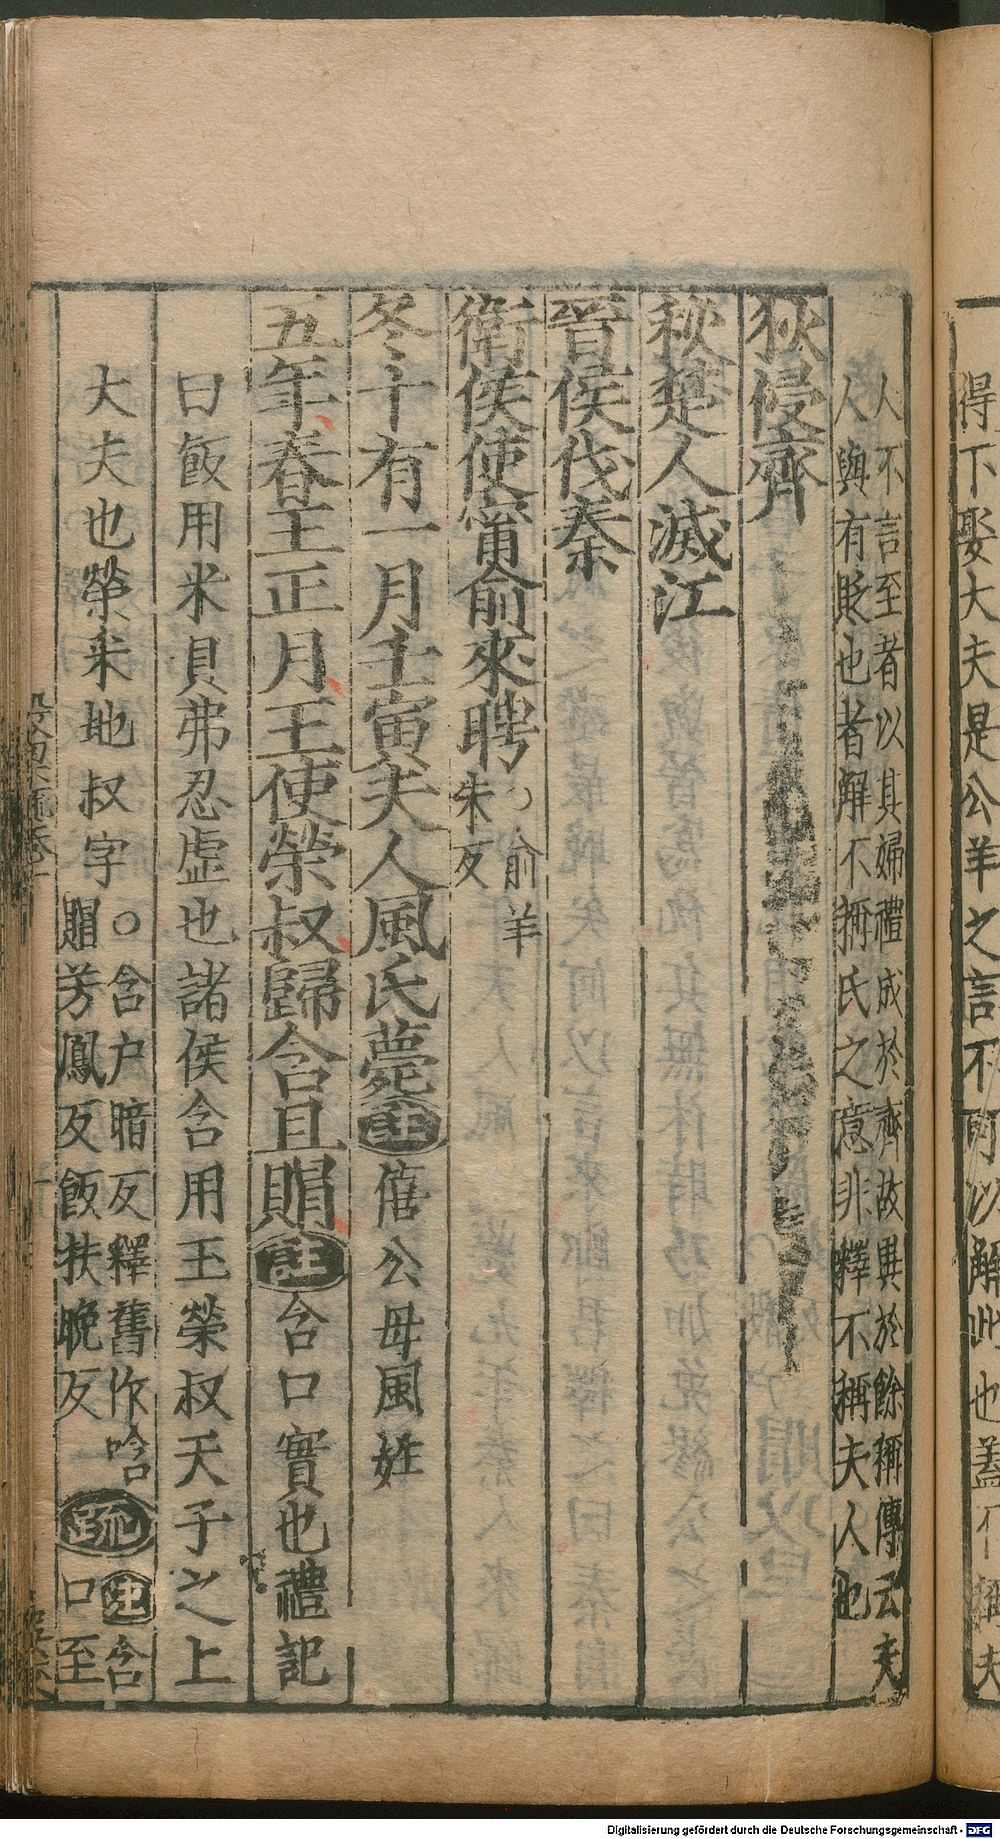 得下娶大夫是公羊之言不可以解此也蓋不稱夫
人不言至者以其婦禮成於齊故異於餘稱傳云夫
人與有貶也者解不稱氏之意非釋不稱夫人也
狄侵齊
秋楚人滅江
晉侯伐秦
衛侯使甯俞來聘○俞羊朱反
冬十有一月壬寅夫人風氏薨註僖公母風姓
五年春王正月王使榮叔歸含且賵註含口實也禮記
曰飯用米貝弗忍虛也諸侯含用玉榮叔天子之上
大夫也榮采地叔字○含户暗反釋舊作唅賵芳鳳反飯扶晚反疏註含口至
Digitalisierung gefördert durch die Deutsche Forschungsgemeinschaft - DFG